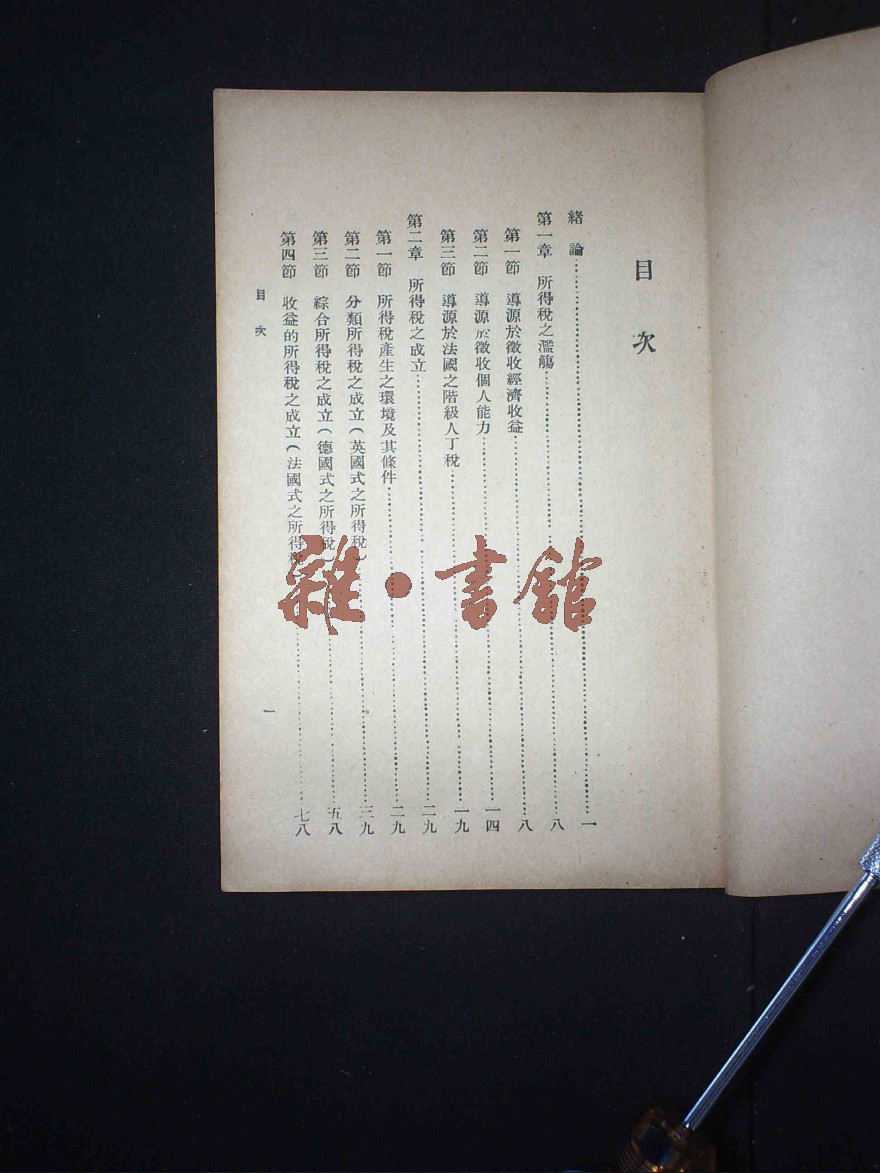 目次
緒論……一
第一章 所得稅之濫觴……八
第一節 導源於徵收經濟收益……八
第二節 導源於徵收個人能力……一四
第三節 導源於法國之階級人丁稅……一九
第二章 所得稅之成立……二九
第一節 所得稅產生之環境及其條件……二九
第二節 分類所得稅之成立(英國式之所得稅)……三九
第三節 綜合所得稅之成立(德國式之所得稅)……五八
第四節 收益的所得稅之成立(法國式之所得稅)……七八
目次
一
雜·書館